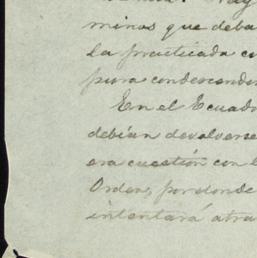 minos que deba
la practicada co
pura condescenden
En el Ecuado
debían devolverse
era cuestión con l
Orden, por donde
intentará atra